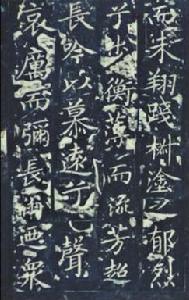 而未翔踐椒塗之郁烈
兮步衡薄而流芳超
長吟以慕遠兮聲
哀厲而彌長爾迺衆